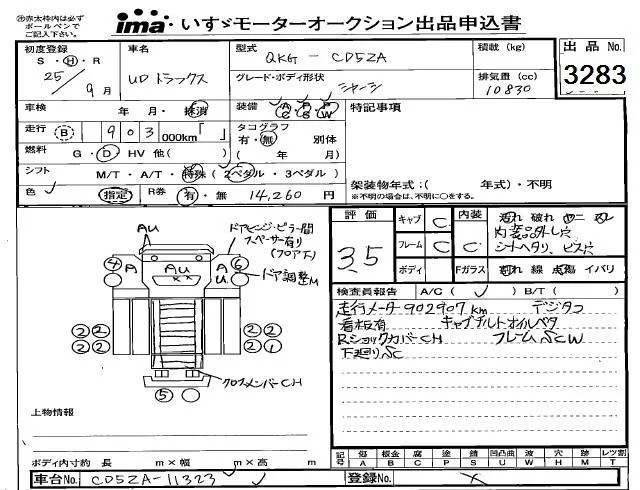 ㊟赤太枠内は必ず
ボールペンで
ご記入下さい。
ima・いすゞモーターオークション出品申込書
初度登録
S・H・R
25/9月
車名
UDトラックス
型式
QKG - CD5ZA
積載 (kg)
グレード・ボディ形状
シャーシ
排気量 (cc)
10830
出品 No.
3283
車検
年 月・抹消
装備
A/C P/S P/W
特記事項
走行
B 903 000km「 」
タコグラフ
有・無 別体
( 年 月)
燃料
G・D HV 他( )
シフト
M/T・A/T・特殊 (2ペダル・3ペダル)
架装物年式:( 年式)・不明
※不明の場合は、不明に○をする。
色
指定
R券
有・無 14,260円
評価
3.5
キャブ C
フレーム C
ボディ
内装 C
Fガラス
汚れ 破れ
内装品外し穴
シートヘタリ、ビス穴
割れ 線 点傷 イバリ
AU
ドアヒンジ・ピラー間
スペーサー有り
(フロア下)
④ A AU A U ⑥
ドア調整M
②② ②②
②② ②①
⑤
クロスメンバーCH
検査員報告
A/C( ✓ ) B/T( )
走行メーター902907km デジタコ
看板有 キャブチルトオイルベタ
RショックカバーCH フレームSCW
下廻りSC
上物情報
ボディ内寸約 長 m×幅 m×高 m
記号
傷 板金 腐 塗 錆 凹凸曲 波 穴 跡 レツ割
A B C P S U W H M T
車台No. CD5ZA-11323
登録No.